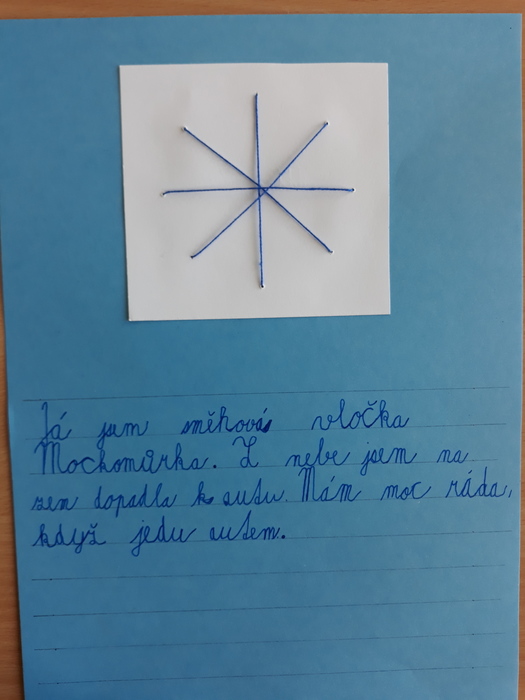 Já jsem sněhová vločka
Mochomůrka. Z nebe jsem na
zem dopadla k autu. Mám moc ráda,
když jedu autem.